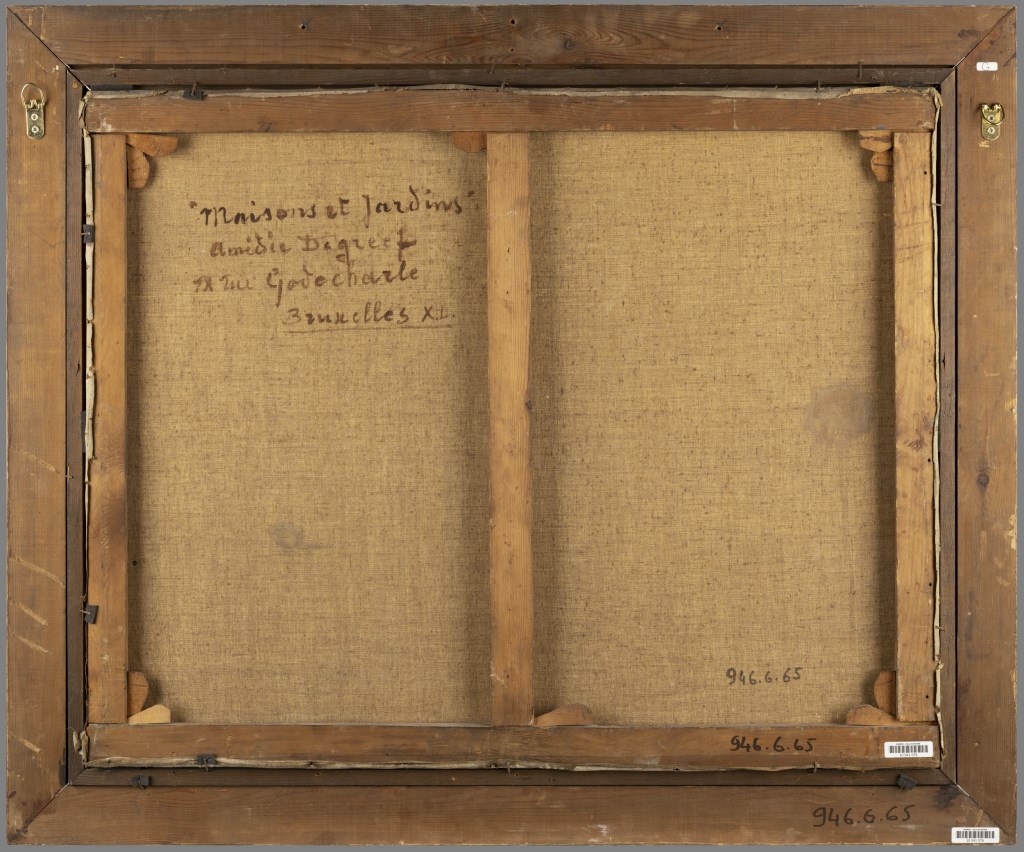 "Maisons et Jardins"
Amédée Degreef
rue Godecharle
Bruxelles XL.
946.6.65
946.6.65
946.6.65